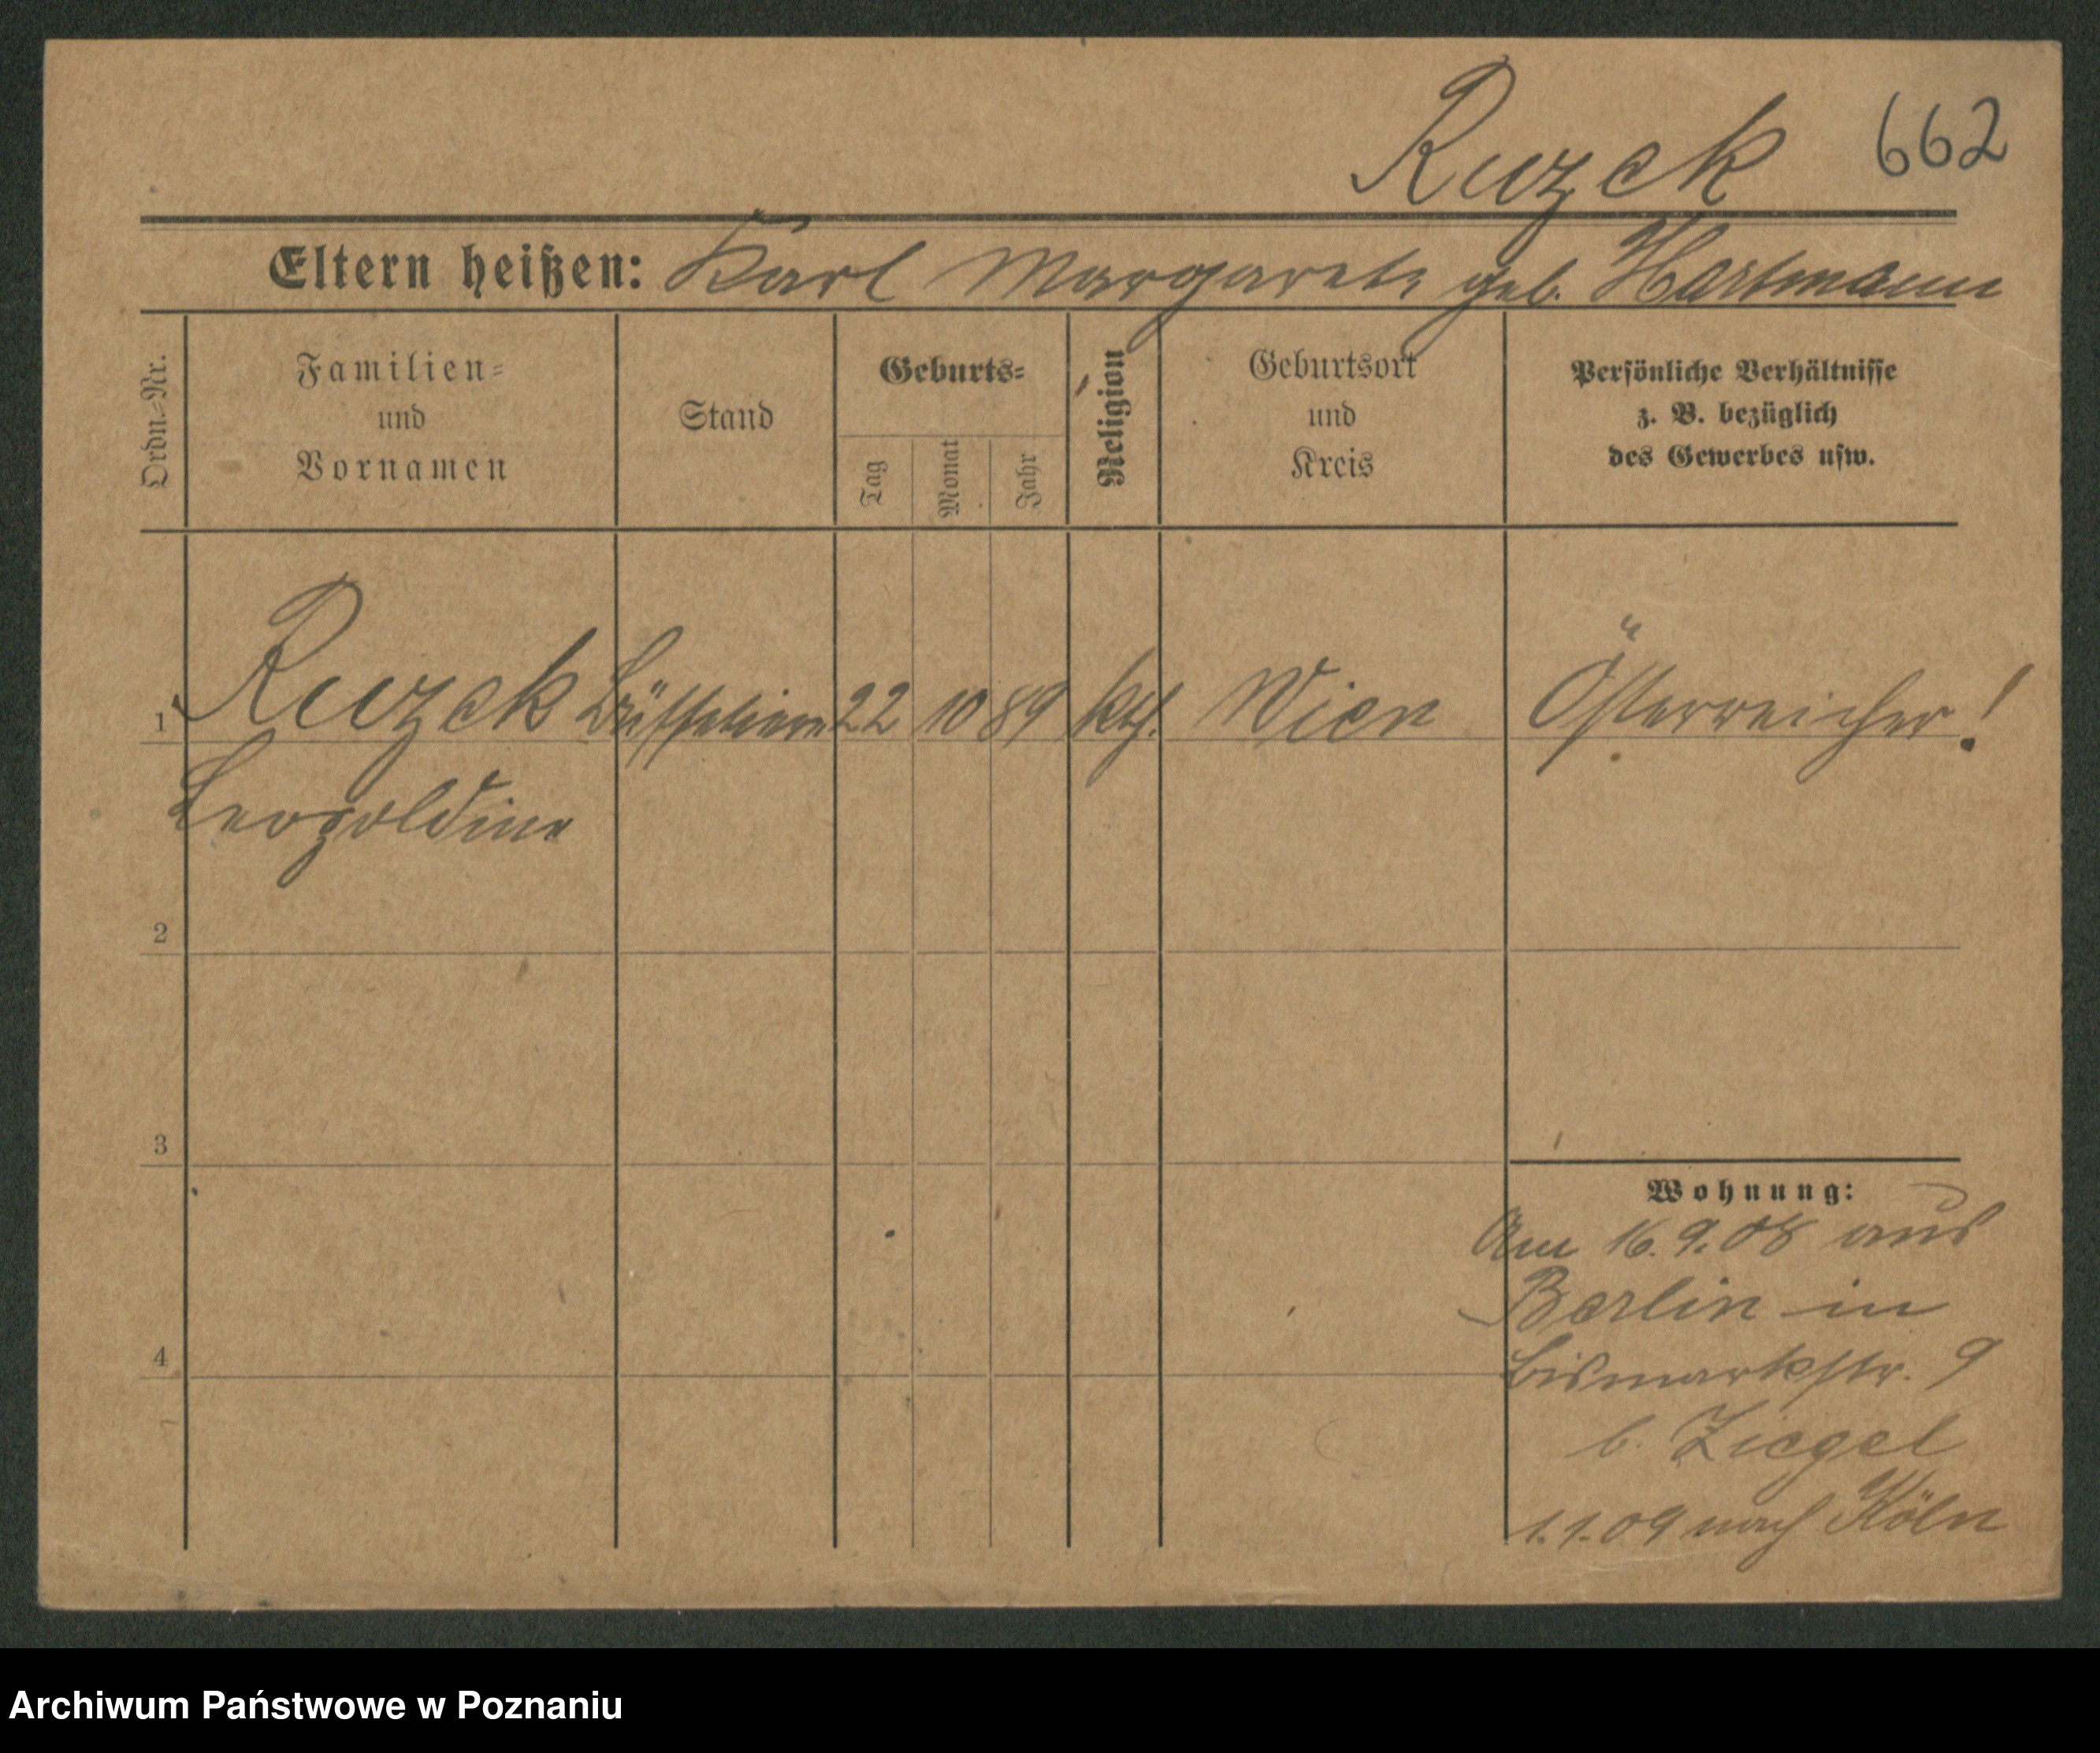 Ruzek 662
Eltern heißen: Karl Margarete geb. Hartmann
Ordn.-Nr.
Familien-
und
Vornamen
Stand
Geburts-
Tag
Monat
Jahr
Religion
Geburtsort
und
Kreis
Persönliche Verhältnisse
z. B. bezüglich
des Gewerbes usw.
1 Ruzek Büffetiere 22 10 89 kth. Wien Österreicher!
Leopoldine
2
3
4
Wohnung:
Am 16.9.08 aus
Berlin in
Bismarkstr. 9
b. Ziegel
1.1.09 nach Köln
Archiwum Państwowe w Poznaniu